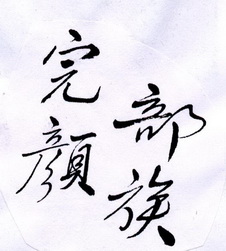 完顏
部族